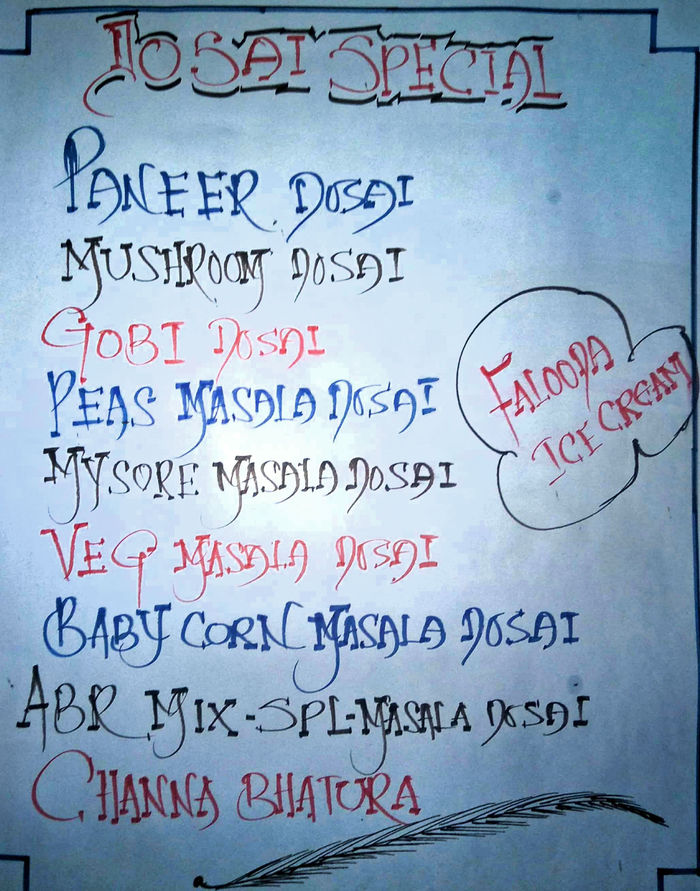 DOSAI SPECIAL
PANEER DOSAI
MUSHROOM DOSAI
GOBI DOSAI
PEAS MASALA DOSAI
MYSORE MASALA DOSAI
VEG MASALA DOSAI
BABY CORN MASALA DOSAI
ABR MIX-SPL-MASALA DOSAI
CHANNA BHATURA
FALOODA
ICE CREAM